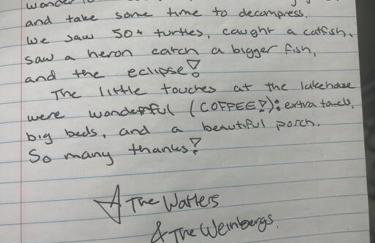 and take some time to decompress.
We saw 50+ turtles, caught a catfish,
saw a heron catch a bigger fish,
and the eclipse!
The little touches at the lakehouse
were wonderful (COFFEE!): extra towels,
big beds, and a beautiful porch.
So many thanks!
The Watters
& The Weinbergs.